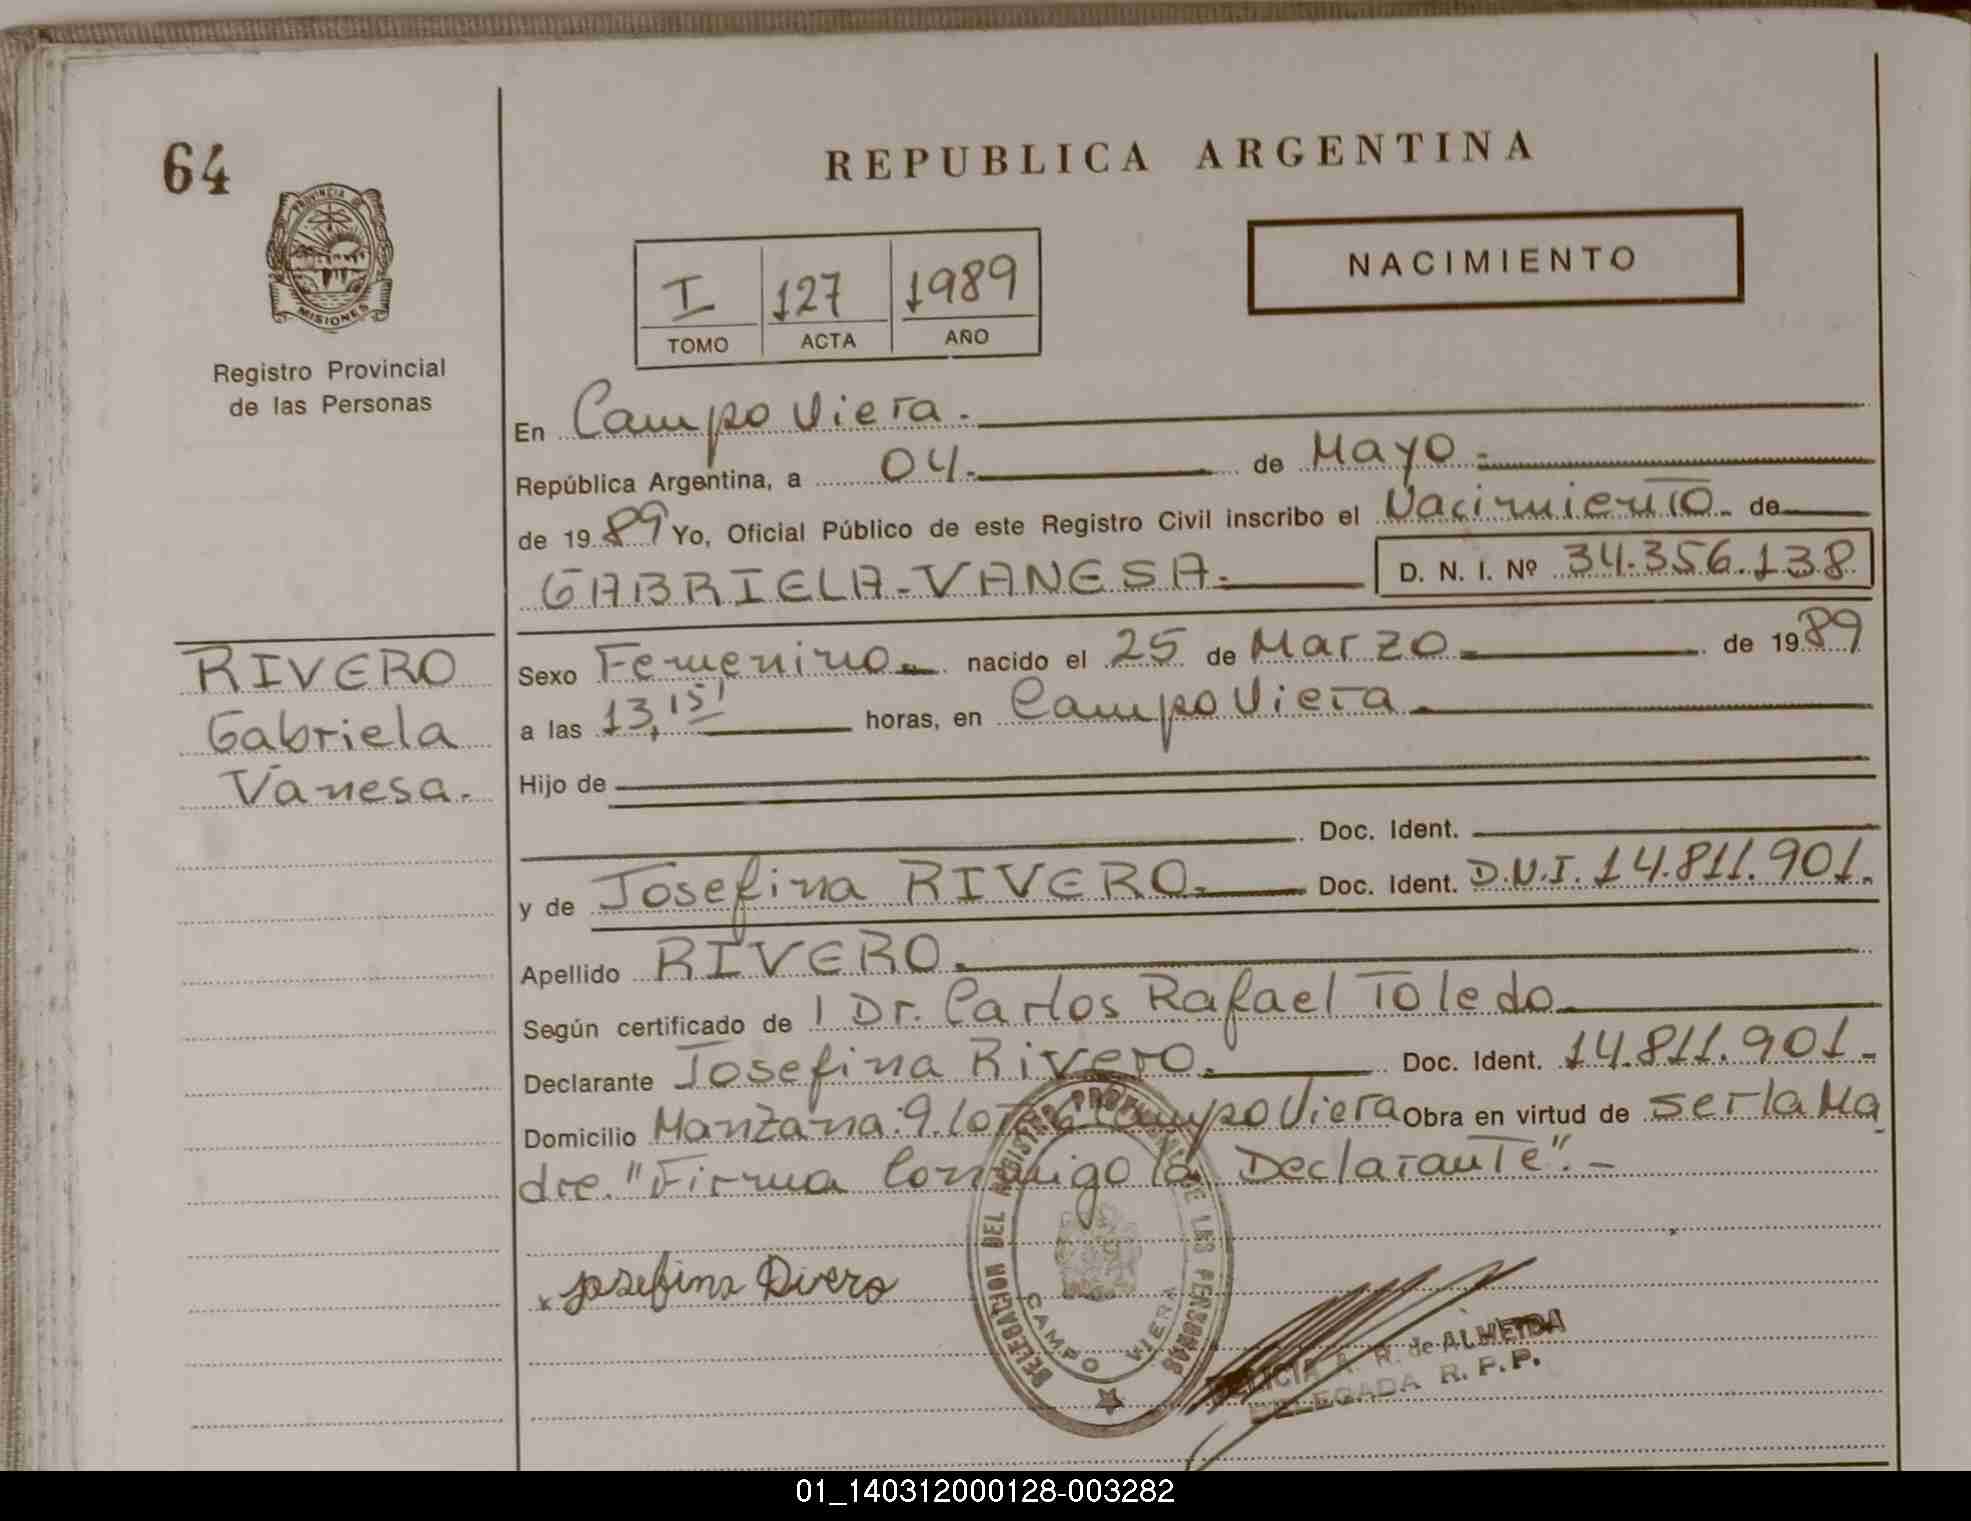 64
REPUBLICA ARGENTINA
PROVINCIA DE
MISIONES
Registro Provincial
de las Personas
NACIMIENTO
I 127 1989
TOMO ACTA AÑO
En Campo Viera.
República Argentina, a 04. de Mayo
de 1989 Yo, Oficial Público de este Registro Civil inscribo el Nacimiento de
GABRIELA-VANESA. D. N. I. Nº 34.356.138
RIVERO
Gabriela
Vanesa.
Sexo Femenino nacido el 25 de Marzo de 1989
a las 13,15' horas, en Campo Viera
Hijo de
Doc. Ident.
y de Josefina RIVERO. Doc. Ident. D.N.I. 14.811.901.
Apellido RIVERO.
Según certificado de l Dr. Carlos Rafael Toledo
Declarante Josefina Rivero. Doc. Ident. 14.811.901-
Domicilio Manzana:9.Lote 6 Campo Viera Obra en virtud de ser la Ma
dre. "Firma Conmigo la Declarante".-
Josefina Rivero
DELEGACION DEL REGISTRO PROVINCIAL DE LES PERSONAS
CAMPO VIERA
FELICIA A. R. de ALMEIDA
DELEGADA R. P. P.
01_140312000128-003282